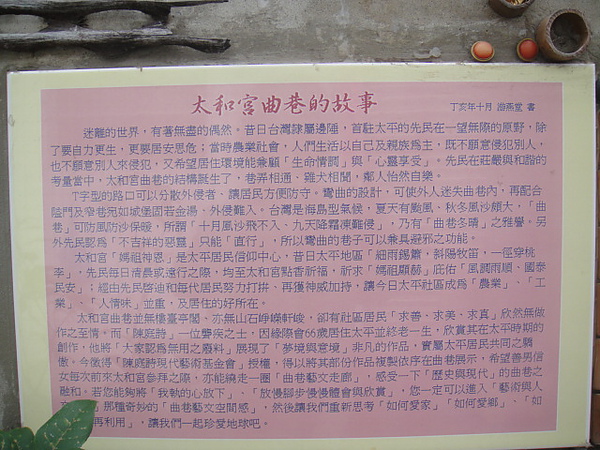 太和宮曲巷的故事
丁亥年十月 游燕堂 書
迷離的世界，有著無盡的偶然。昔日台灣隸屬邊陲，首駐太平的先民在一望無際的原野，除
了要自力更生，更要居安思危；當時農業社會，人們生活以自己及親族為主，既不願意侵犯別人，
也不願意別人來侵犯，又希望居住環境能兼顧「生命情調」與「心靈享受」。先民在莊嚴與和諧的
考量當中，太和宮曲巷的結構誕生了，巷弄相通、雞犬相聞，鄰人怡然自樂。
T字型的路口可以分散外侵者、讓居民方便防守。彎曲的設計，可使外人迷失曲巷內，再配合
隘門及窄巷宛如城堡固若金湯、外侵難入。台灣是海島型氣候、夏天有颱風、秋冬風沙頗大，「曲
巷」可防風防沙保暖，所謂「十月風沙飛不入、九天降霜凍難侵」，乃有「曲巷冬晴」之雅譽。另
外先民認為「不吉祥的惡靈」只能「直行」，所以彎曲的巷子可以兼具避邪之功能。
太和宮「媽祖神恩」是太平地區居民信仰中心，昔日太平地區「細雨錫簫，斜陽牧笛，一徑穿桃
李」，先民每日清晨或遠行之際，均至太和宮點香祈福，祈求「媽祖顯赫」庇佑「風調雨順、國泰
民安」；經由先民啓迪和每代居民努力打拼、再獲神威加持，讓今日太平社區成為「農業」、「工
業」、「人情味」並重，及居住的好所在。
太和宮曲巷並無樓臺亭閣、亦無山石崢嶸軒峻，卻有社區居民「求善、求美、求真」欣然無做
作之至情。而「陳庭詩」一位聾疾之士，因緣際會66歲居住太平並終老一生，欣賞其在太平時期的
創作，他將「大家認為無用之廢料」展現了「夢境與意境」非凡的作品，實屬太平居民共同之驕
傲。今徵得「陳庭詩現代藝術基金會」授權，得以將其部份作品複製依序在曲巷展示，希望善男信
女每次前來太和宮參拜之際，亦能繞走一圈「曲巷藝文走廊」，感受一下「歷史與現代」的曲巷之
融和。若您能夠將「我執的心放下」、「放慢腳步慢慢體會與欣賞」，您一定可以進入「藝術與人
那種奇妙的「曲巷藝文空間感」，然後讓我們重新思考「如何愛家」「如何愛鄉」、「如
再利用」，讓我們一起珍愛地球吧。